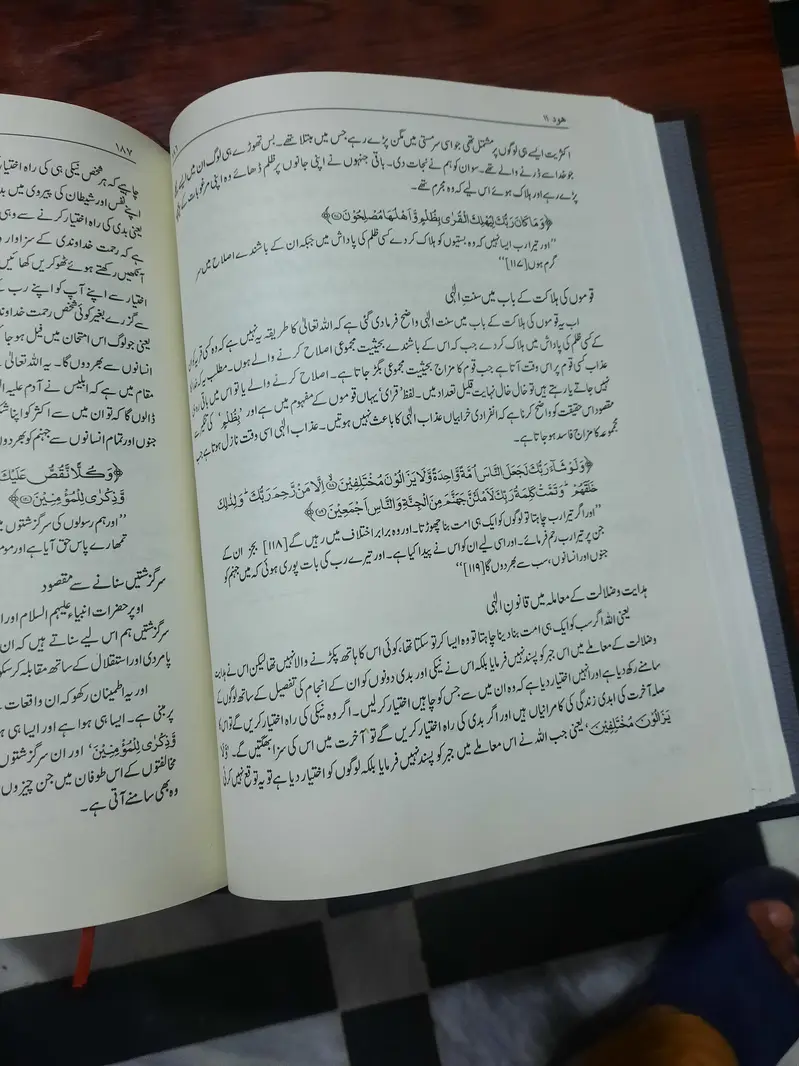 هود ۱۱
اکثریت ایسے ہی لوگوں پر مشتمل تھی جو اسی سرمستی میں مگن پڑے رہے جس میں مبتلا تھے۔ بس تھوڑے ہی لوگ ان میں ایسے
جو خدا سے ڈرنے والے تھے۔ سو ان کو ہم نے نجات دی۔ باقی جنہوں نے اپنی جانوں پر ظلم ڈھائے وہ اپنی مرغوبات کے
پڑے رہے اور ہلاک ہوئے اس لیے کہ وہ مجرم تھے۔
﴿وَمَا كَانَ رَبُّكَ لِيُهْلِكَ الْقُرٰى بِظُلْمٍ وَّاَهْلُهَا مُصْلِحُوْنَ﴾
''اور تیرا رب ایسا نہیں کہ وہ بستیوں کو ہلاک کر دے کسی ظلم کی پاداش میں جبکہ ان کے باشندے اصلاح میں سر
گرم ہوں [۱۱۷]''
قوموں کی ہلاکت کے باب میں سنتِ الٰہی
اب یہ قوموں کی ہلاکت کے باب میں سنت الٰہی واضح فرما دی گئی ہے کہ اللہ تعالیٰ کا طریقہ یہ نہیں ہے کہ وہ کسی قریہ
کے کسی ظلم کی پاداش میں ہلاک کر دے جب کہ اس کے باشندے بحیثیت مجموعی اصلاح کرنے والے ہوں۔ مطلب یہ کہ
عذاب کسی قوم پر اس وقت آتا ہے جب قوم کا مزاج بحیثیت مجموعی بگڑ جاتا ہے۔ اصلاح کرنے والے یا تو اس میں باقی
نہیں رہ جاتے یا رہتے ہیں تو خال خال نہایت قلیل تعداد میں۔ لفظ 'قرای' یہاں قوموں کے مفہوم میں ہے اور 'بِظُلْمٍ' کی
مقصود اس حقیقت کو واضح کرنا ہے کہ انفرادی خرابیاں عذاب الٰہی کا باعث نہیں ہوتیں۔ عذاب الٰہی اسی وقت نازل ہوتا ہے جب
مجموعہ کا مزاج فاسد ہو جاتا ہے۔
﴿وَلَوْ شَآءَ رَبُّكَ لَجَعَلَ النَّاسَ اُمَّةً وَّاحِدَةً وَّلَا يَزَالُوْنَ مُخْتَلِفِيْنَ اِلَّا مَنْ رَّحِمَ رَبُّكَ وَلِذٰلِكَ
خَلَقَهُمْ وَتَمَّتْ كَلِمَةُ رَبِّكَ لَاَمْلَئَنَّ جَهَنَّمَ مِنَ الْجِنَّةِ وَالنَّاسِ اَجْمَعِيْنَ﴾
''اور اگر تیرا رب چاہتا تو لوگوں کو ایک ہی امت بنا چھوڑتا۔ اور وہ برابر اختلاف میں رہیں گے [۱۱۸] بجز ان کے
جن پر تیرا رب رحم فرمائے۔ اور اسی لیے ان کو اس نے پیدا کیا ہے۔ اور تیرے رب کی بات پوری ہوئی کہ میں جہنم کو
جنوں اور انسانوں، سب سے بھر دوں گا [۱۱۹]''
ہدایت و ضلالت کے معاملہ میں قانونِ الٰہی
یعنی اللہ اگر سب کو ایک ہی امت بنا دینا چاہتا تو وہ ایسا کر تو سکتا تھا، کوئی اس کا ہاتھ پکڑنے والا نہیں تھا لیکن اس نے ہدایت
و ضلالت کے معاملے میں اس جبر کو پسند نہیں فرمایا بلکہ اس نے نیکی اور بدی دونوں کو ان کے انجام کی تفصیل کے ساتھ لوگوں کے
سامنے رکھ دیا ہے اور انہیں اختیار دیا ہے کہ وہ ان میں سے جس کو چاہیں اختیار کر لیں۔ اگر وہ نیکی کی راہ اختیار کریں گے تو اس
صلہ آخرت کی ابدی زندگی کی کامرانیاں ہیں اور اگر بدی کی راہ اختیار کریں گے تو آخرت میں اس کی سزا بھگتیں گے۔
يَزَالُوْنَ مُخْتَلِفِيْنَ، یعنی جب اللہ نے اس معاملے میں جبر کو پسند نہیں فرمایا بلکہ لوگوں کو اختیار دیا ہے تو یہ توقع نہیں کرنی
۱۸۷
چاہیے کہ ہر شخص نیکی ہی کی راہ اختیار
اپنے نفس اور شیطان کی پیروی میں بد
یعنی بدی کی راہ اختیار کرنے سے وہی
ہے کہ رحمت خداوندی کے سزاوار و
آنکھیں رکھتے ہوئے ٹھوکریں کھائیں
اختیار سے اپنے آپ کو اپنے رب کے
سے گزرے بغیر کوئی شخص رحمت خداوند
یعنی جو لوگ اس امتحان میں فیل ہو جا
انسانوں سے بھر دوں گا۔ یہ اللہ تعالیٰ
مقام میں ہے کہ ابلیس نے آدم علیہ ال
ڈالوں گا کہ تو ان میں سے اکثر کو اپنا شک
جنوں اور تمام انسانوں سے جہنم کو بھر دوں
﴿وَكُلًّا نَّقُصُّ عَلَيْكَ
وَّذِكْرٰى لِلْمُؤْمِنِيْنَ﴾
''اور ہم رسولوں کی سرگزشتوں میں
تمہارے پاس حق آیا ہے اور موم
سرگزشتیں سنانے سے مقصود
اوپر حضرات انبیاء علیہم السلام اور ا
سرگزشتیں ہم اس لیے سناتے ہیں کہ ان
پامردی اور استقلال کے ساتھ مقابلہ کر سکو
اور یہ اطمینان رکھو کہ ان واقعات
پر مبنی ہے۔ ایسا ہی ہوا ہے اور ایسا ہی ہو
وَّذِكْرٰى لِلْمُؤْمِنِيْنَ، اور ان سرگزشتوں
مخالفتوں کے اس طوفان میں جن چیزوں
وہ بھی سامنے آتی ہے۔